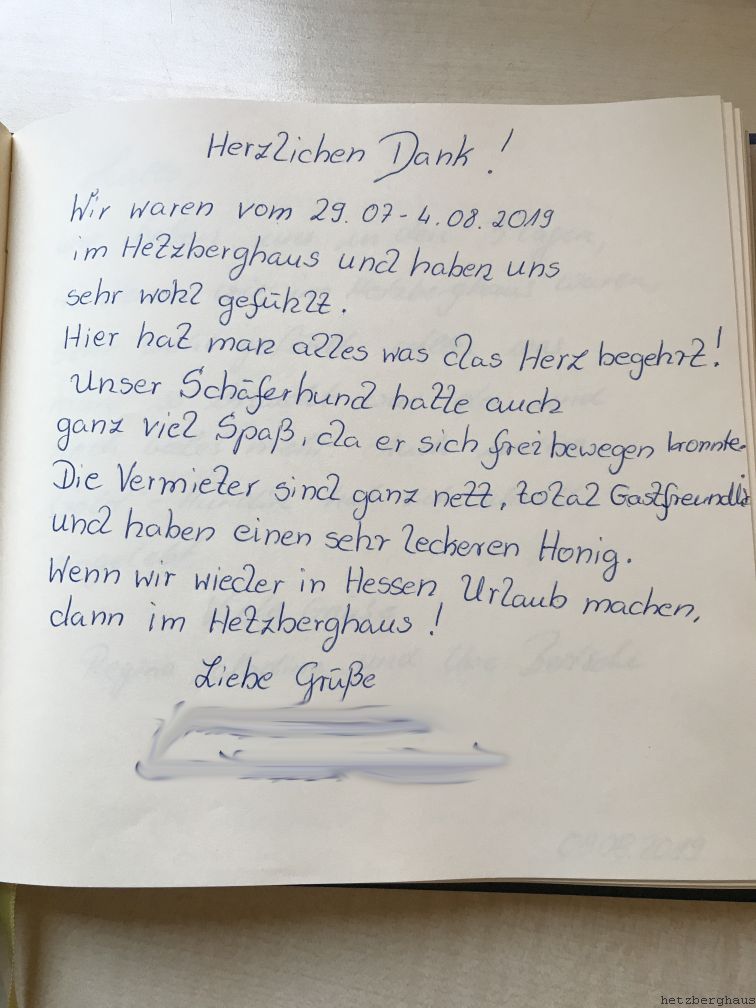 Herzlichen Dank!
Wir waren vom 29.07-4.08.2019
im Hetzberghaus und haben uns
sehr wohl gefühlt.
Hier hat man alles was das Herz begehrt!
Unser Schäferhund hatte auch
ganz viel Spaß, da er sich frei bewegen konnte.
Die Vermieter sind ganz nett, total Gastfreundli
und haben einen sehr leckeren Honig.
Wenn wir wieder in Hessen Urlaub machen,
dann im Hetzberghaus!
Liebe Grüße
09.08.2019
hetzberghaus